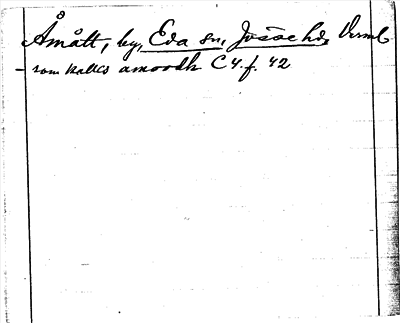 Åmått, by, Eda sn, Jösse hd, Verml.
- som kallas amoodh C4.f. 42